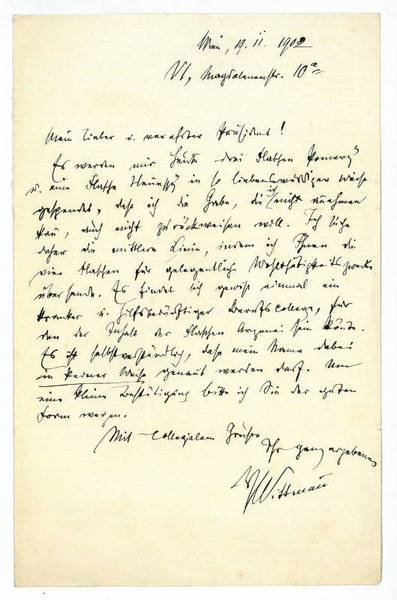 Wien, 19. II. 1902
VI, Magdalenenstr. 10a
Mein lieber u. verehrter Präsident!
Es werden mir heute drei Flaschen Pommery
u. eine Flasche Hennessy in so liebenswürdiger Weise
gespendet, dass ich die Gabe, die ich nicht annehmen
kann, auch nicht zurückweisen will. Ich suche
daher die mittlere Linie, indem ich Ihnen die
vier Flaschen für gelegentliche Wohlthätigkeitszwecke
übersende. Es findet sich gewiss einmal ein
kranker u. hilfsbedürftiger Berufscollege, für
den der Inhalt der Flaschen Arznei sein könnte.
Es ist selbstverständlich, dass mein Name dabei
in keiner Weise genannt werden darf. Um
eine kleine Bestätigung bitte ich Sie der guten
Form wegen.
Mit collegialem Grusse
Ihr ganz ergebener
Wittmann